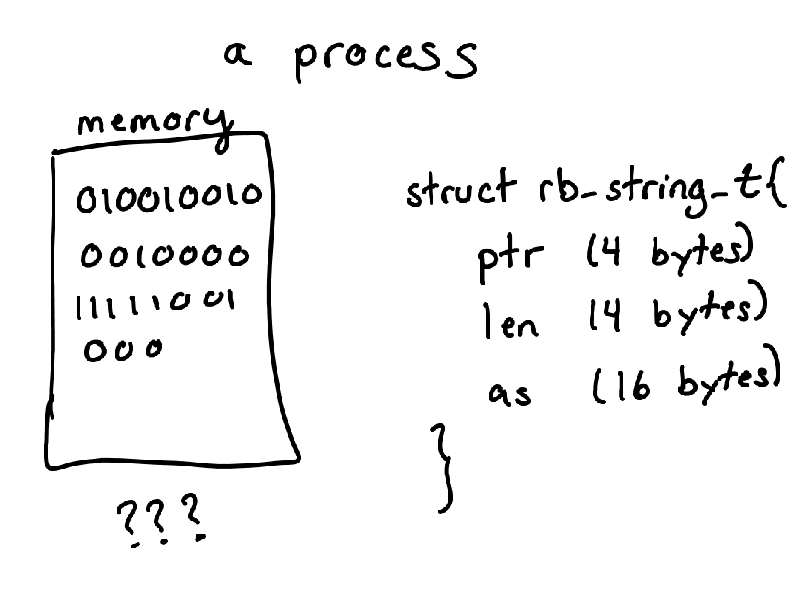 a process
memory
010010010
0010000
11111001
000
???
struct rb_string_t{
ptr (4 bytes)
len (4 bytes)
as (16 bytes)
}